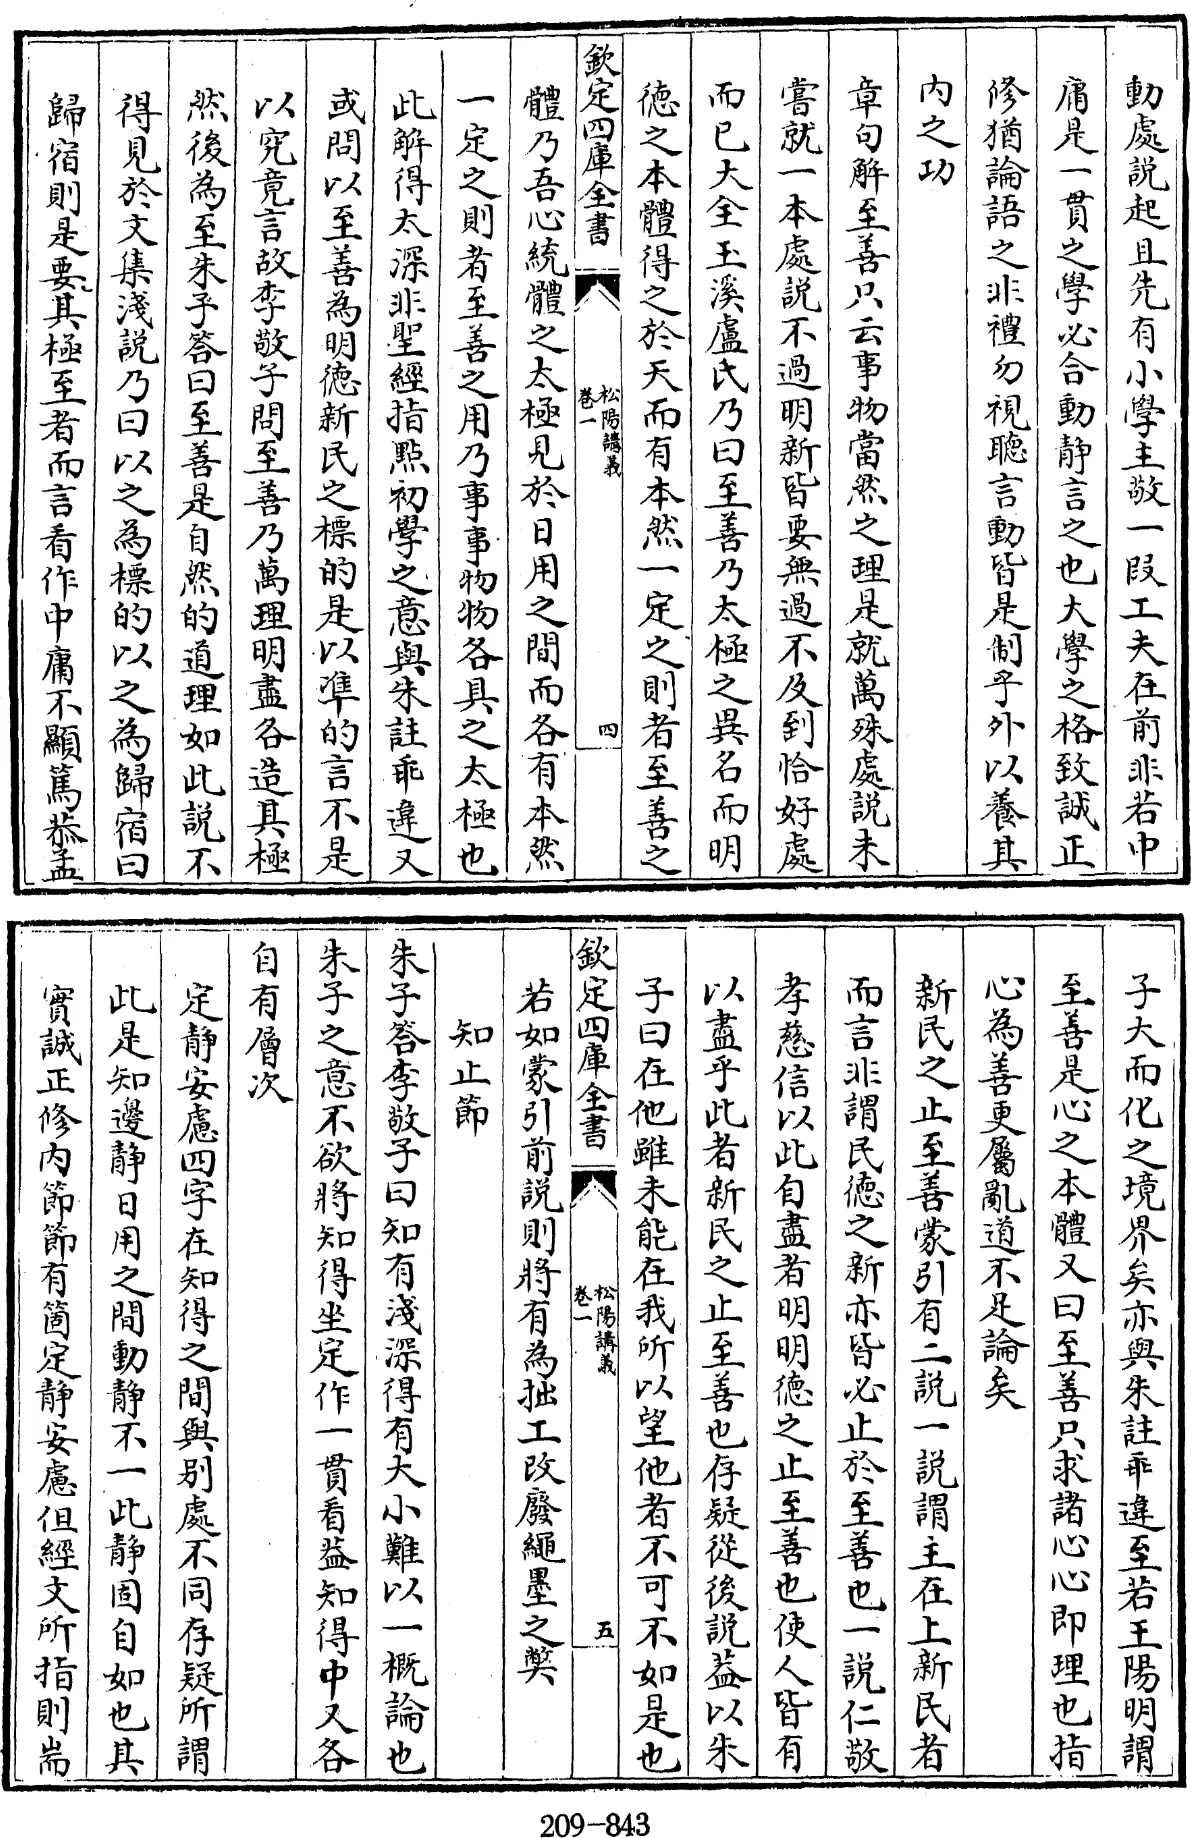 動處說起且先有小學主敬一段工夫在前非若中
庸是一貫之學必合動靜言之也大學之格致誠正
修猶論語之非禮勿視聽言動皆是制乎外以養其
内之功
章句解至善只云事物當然之理是就萬殊處說未
嘗就一本處說不過明新皆要無過不及到恰好處
而已大全玉溪盧氏乃曰至善乃太極之異名而明
徳之本體得之於天而有本然一定之則者至善之
欽定四庫全書
松陽講義
卷一
四
體乃吾心統體之太極見於日用之間而各有本然
一定之則者至善之用乃事事物物各具之太極也
此解得太深非聖經指點初學之意與朱註乖違又
或問以至善為明徳新民之標的是以準的言不是
以究竟言故李敬子問至善乃萬理明盡各造其極
然後為至朱子答曰至善是自然的道理如此說不
得見於文集淺說乃曰以之為標的以之為歸宿曰
歸宿則是要其極至者而言看作中庸不顯篤恭孟
子大而化之境界矣亦與朱註乖違至若王陽明謂
至善是心之本體又曰至善只求諸心心即理也指
心為善更屬亂道不足論矣
新民之止至善蒙引有二說一說謂主在上新民者
而言非謂民徳之新亦皆必止於至善也一說仁敬
孝慈信以此自盡者明明徳之止至善也使人皆有
以盡乎此者新民之止至善也存疑從後說蓋以朱
子曰在他雖未能在我所以望他者不可不如是也
欽定四庫全書
松陽講義
卷一
五
若如蒙引前說則將有為拙工改廢繩墨之弊
知止節
朱子答李敬子曰知有淺深得有大小難以一概論也
朱子之意不欲將知得坐定作一貫看蓋知得中又各
自有層次
定靜安慮四字在知得之間與别處不同存疑所謂
此是知邊靜日用之間動靜不一此靜固自如也其
實誠正修内節節有箇定靜安慮但經文所指則耑
209-843